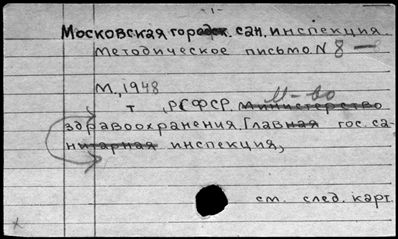 - 1 -
Московская городск. сан. инспекция.
Методическое письмо N 8 -
М., 1948
М-во
т , РСФСР. Министерство
здравоохранения. Главная гос. са-
нитарная инспекция,
см. след. карт.